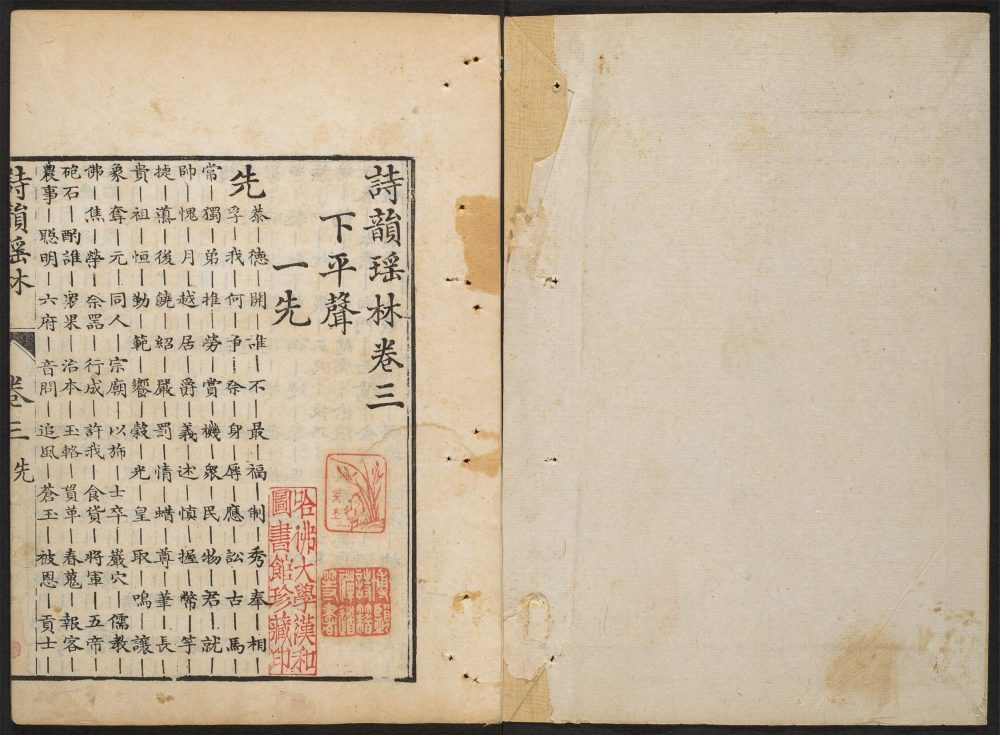 詩韻瑶林卷三
下平聲
一先
先
恭｜德｜開｜誰｜不｜最｜福｜制｜秀｜奉｜相
孚｜我｜何｜争｜身｜辱｜應｜訟｜古｜馬
常｜獨｜弟｜推｜勞｜賞｜機｜衆｜民｜物｜君｜就
帥｜愧｜月｜越｜居｜爵｜義｜述｜慎｜握｜幣｜竽
捷｜後｜饒｜紹｜嚴｜罰｜情｜蜡｜尊｜華｜長
貴｜祖｜恒｜勤｜範｜饗｜穀｜光｜皇｜取｜鳴｜讓
象｜奪｜元｜同人｜宗廟｜以旆｜士卒｜巖穴｜儒教
佛｜焦｜祭器｜行成｜許我｜食貨｜將軍｜五帝
砲石｜酌誰｜果｜治本｜玉輅｜革｜春蒐｜報客
農事｜聰明｜六府｜音問｜追風｜蒼玉｜被恩｜貢士｜
詩韻瑶林
卷三
先
哈佛大學漢和
圖書館珍藏印